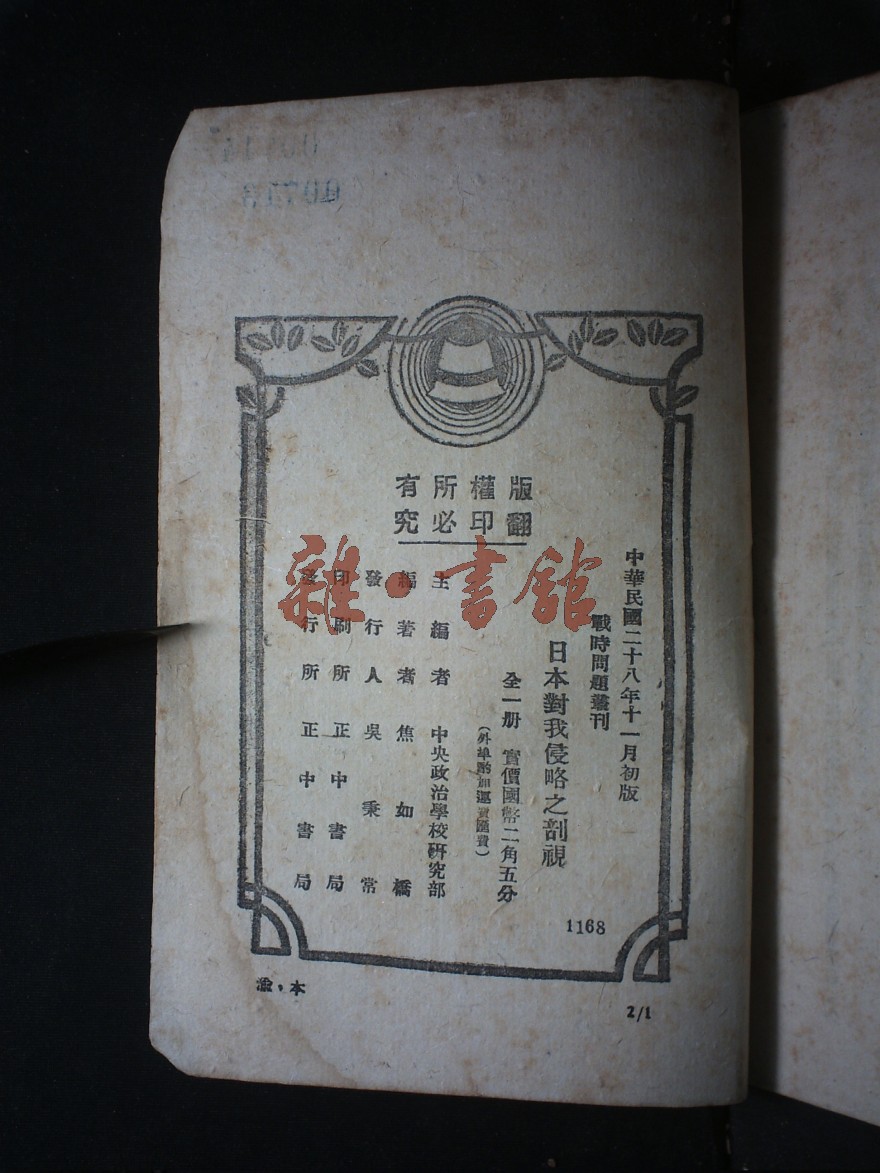 版權所有
翻印必究
中華民國二十八年十一月初版
戰時問題叢刊
日本對我侵略之剖視
全一册 實價國幣二角五分
(外埠酌加運費匯費)
主編者 中央政治學校研究部
編著者 焦如橋
發行人 吳秉常
印刷所 正中書局
發行所 正中書局
1168
渝·本
2/1
雜·書館